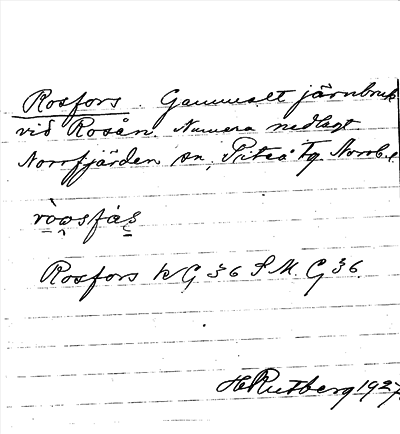 Rosfors. Gammalt järnbruk
vid Rosån. Numera nedlagt
Norrfjärden sn, Piteå tg Norrb.
ròo̯sfás
Rosfors h G 36 S.M. G 36.
H Rutberg 1927.